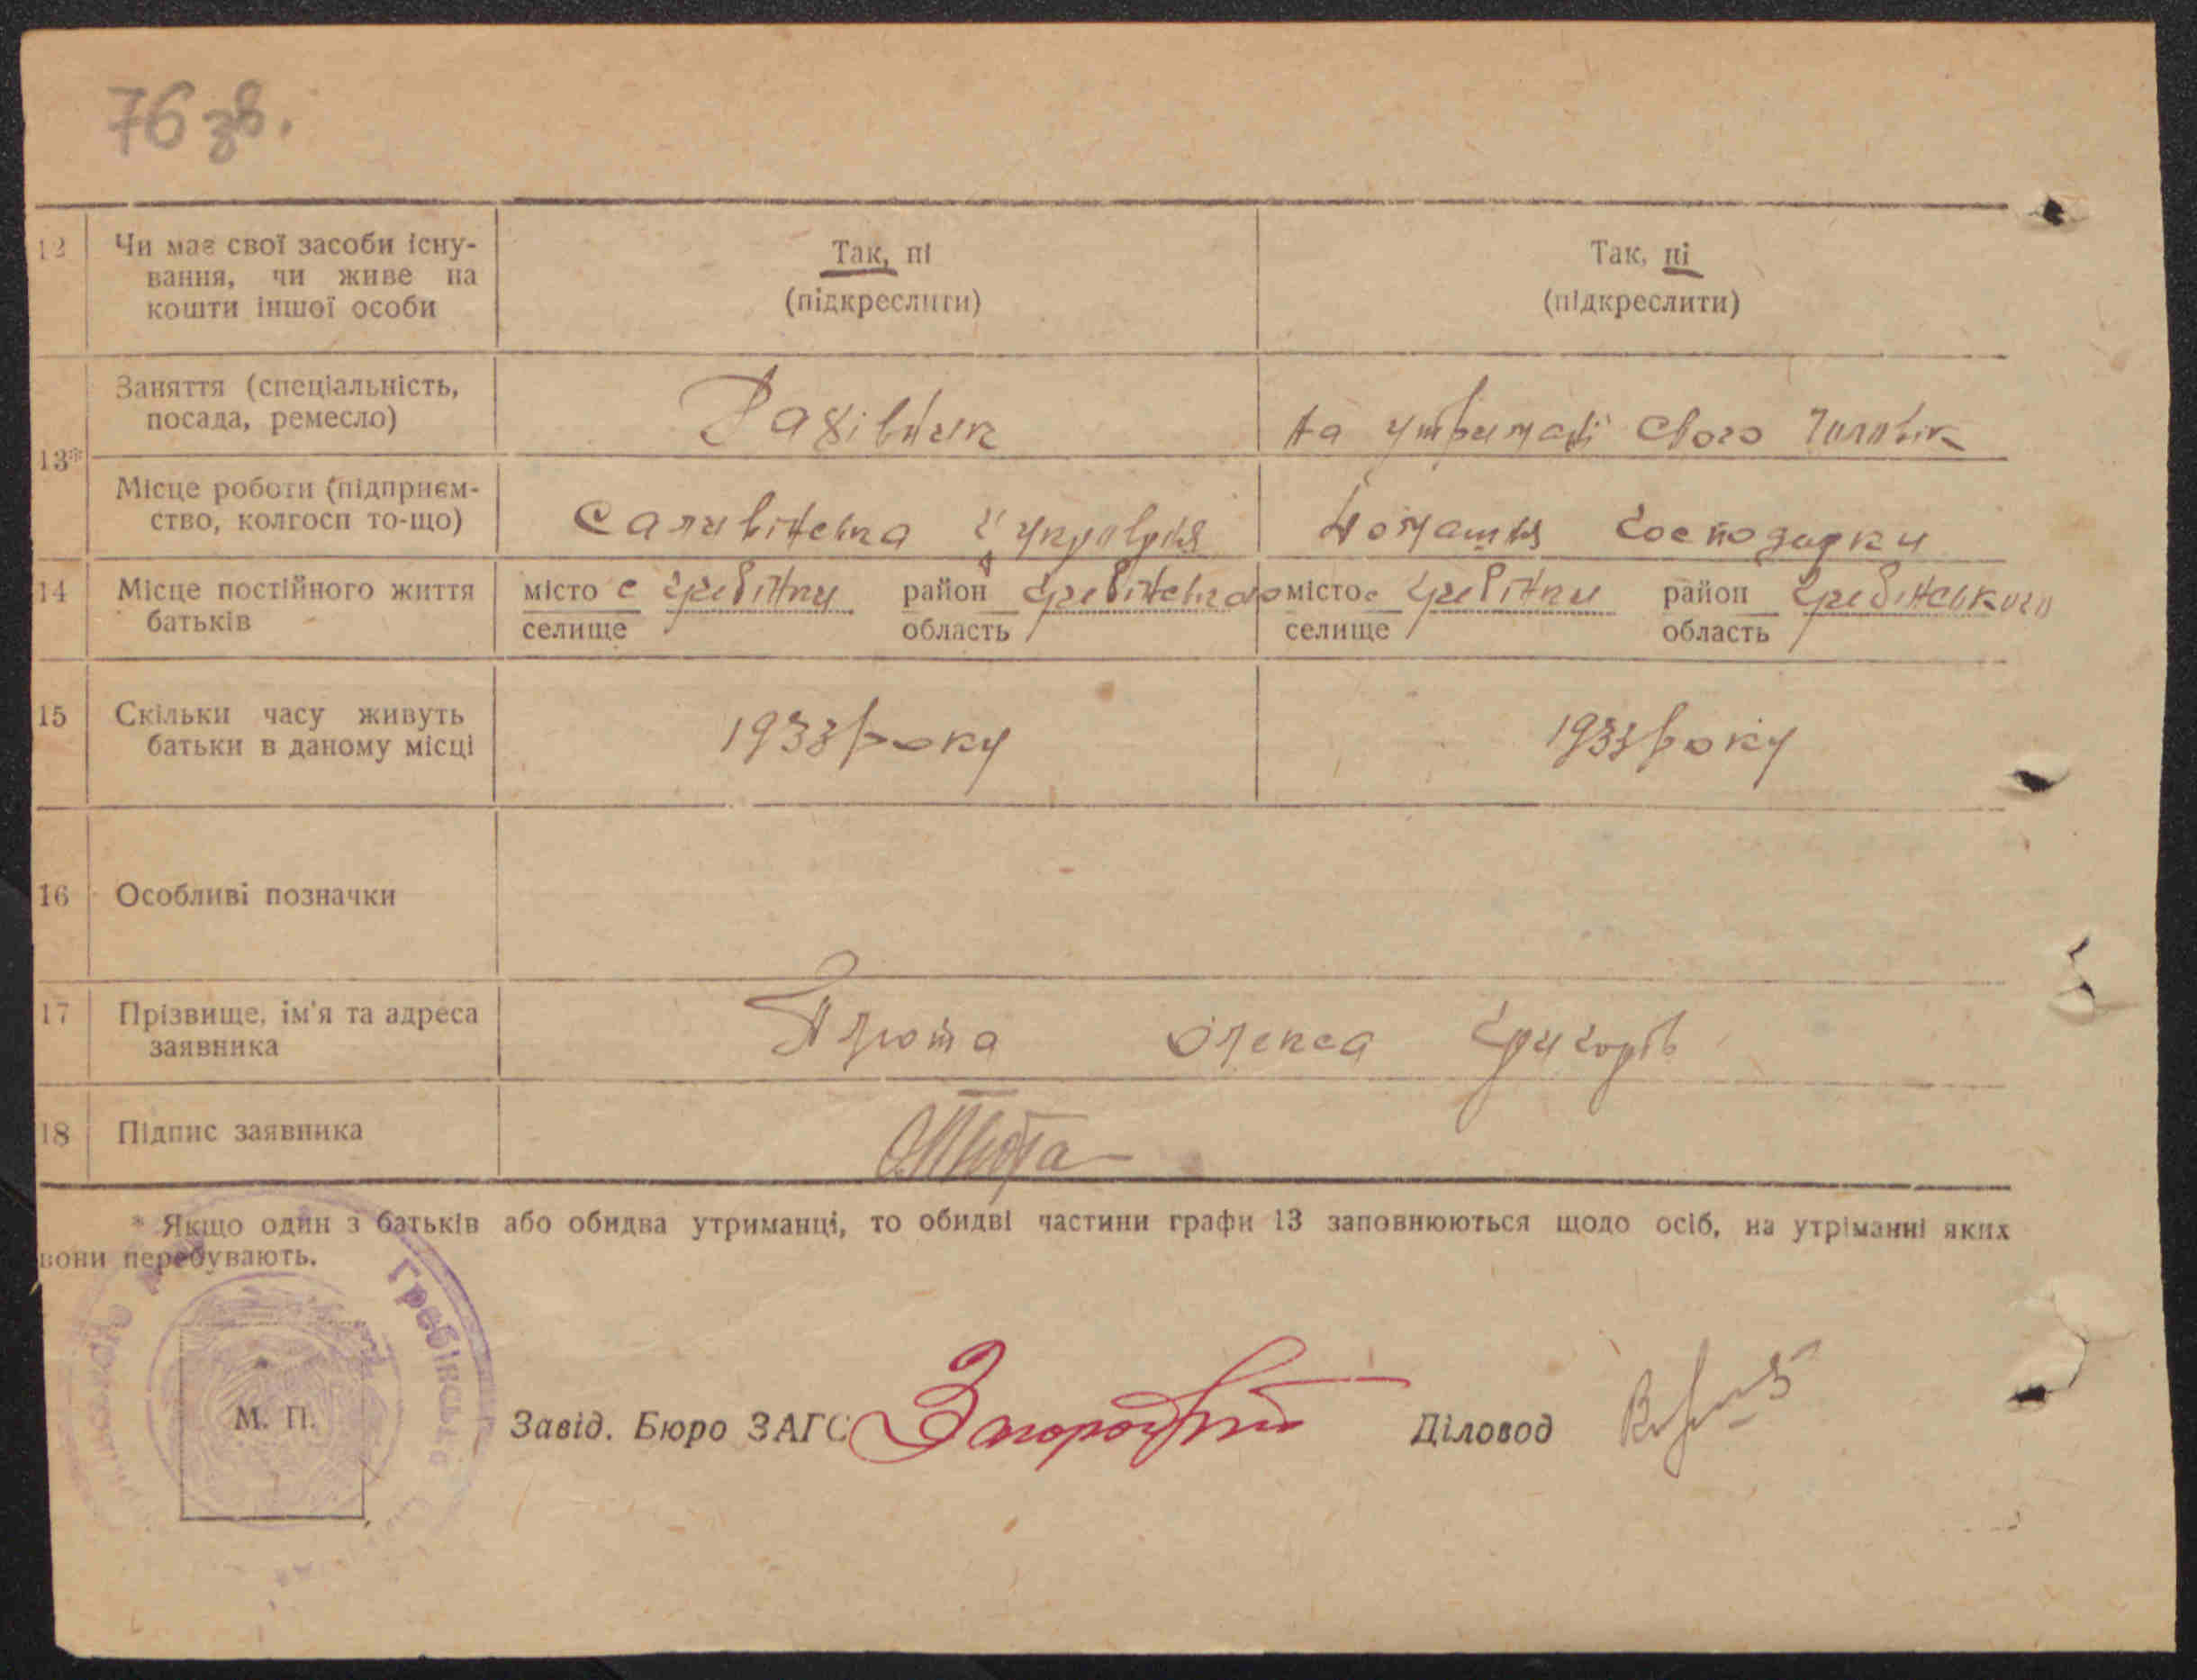 76 зв.
12 Чи має свої засоби існу-
вання, чи живе на
кошти іншої особи
Так, ні
(підкреслити)
Так, ні
(підкреслити)
13*
Заняття (спеціальність,
посада, ремесло)
Рахівник
на утримані свого чоловік
Місце роботи (підприєм-
ство, колгосп то-що)
Саливінська
Домашня господарки
14 Місце постійного життя
батьків
місто с Гребінки район Гребінського
селище область
місто с Гребінки район Гребінського
селище область
15 Скільки часу живуть
батьки в даному місці
1933 року
1933 року
16 Особливі позначки
17 Прізвище, ім'я та адреса
заявника
Олекса Григорів
18 Підпис заявника
* Якщо один з батьків або обидва утриманці, то обидві частини графи 13 заповнюються щодо осіб, на утріманні яких
вони перебувають.
Гребінська
М. П.
Завід. Бюро ЗАГС
Діловод